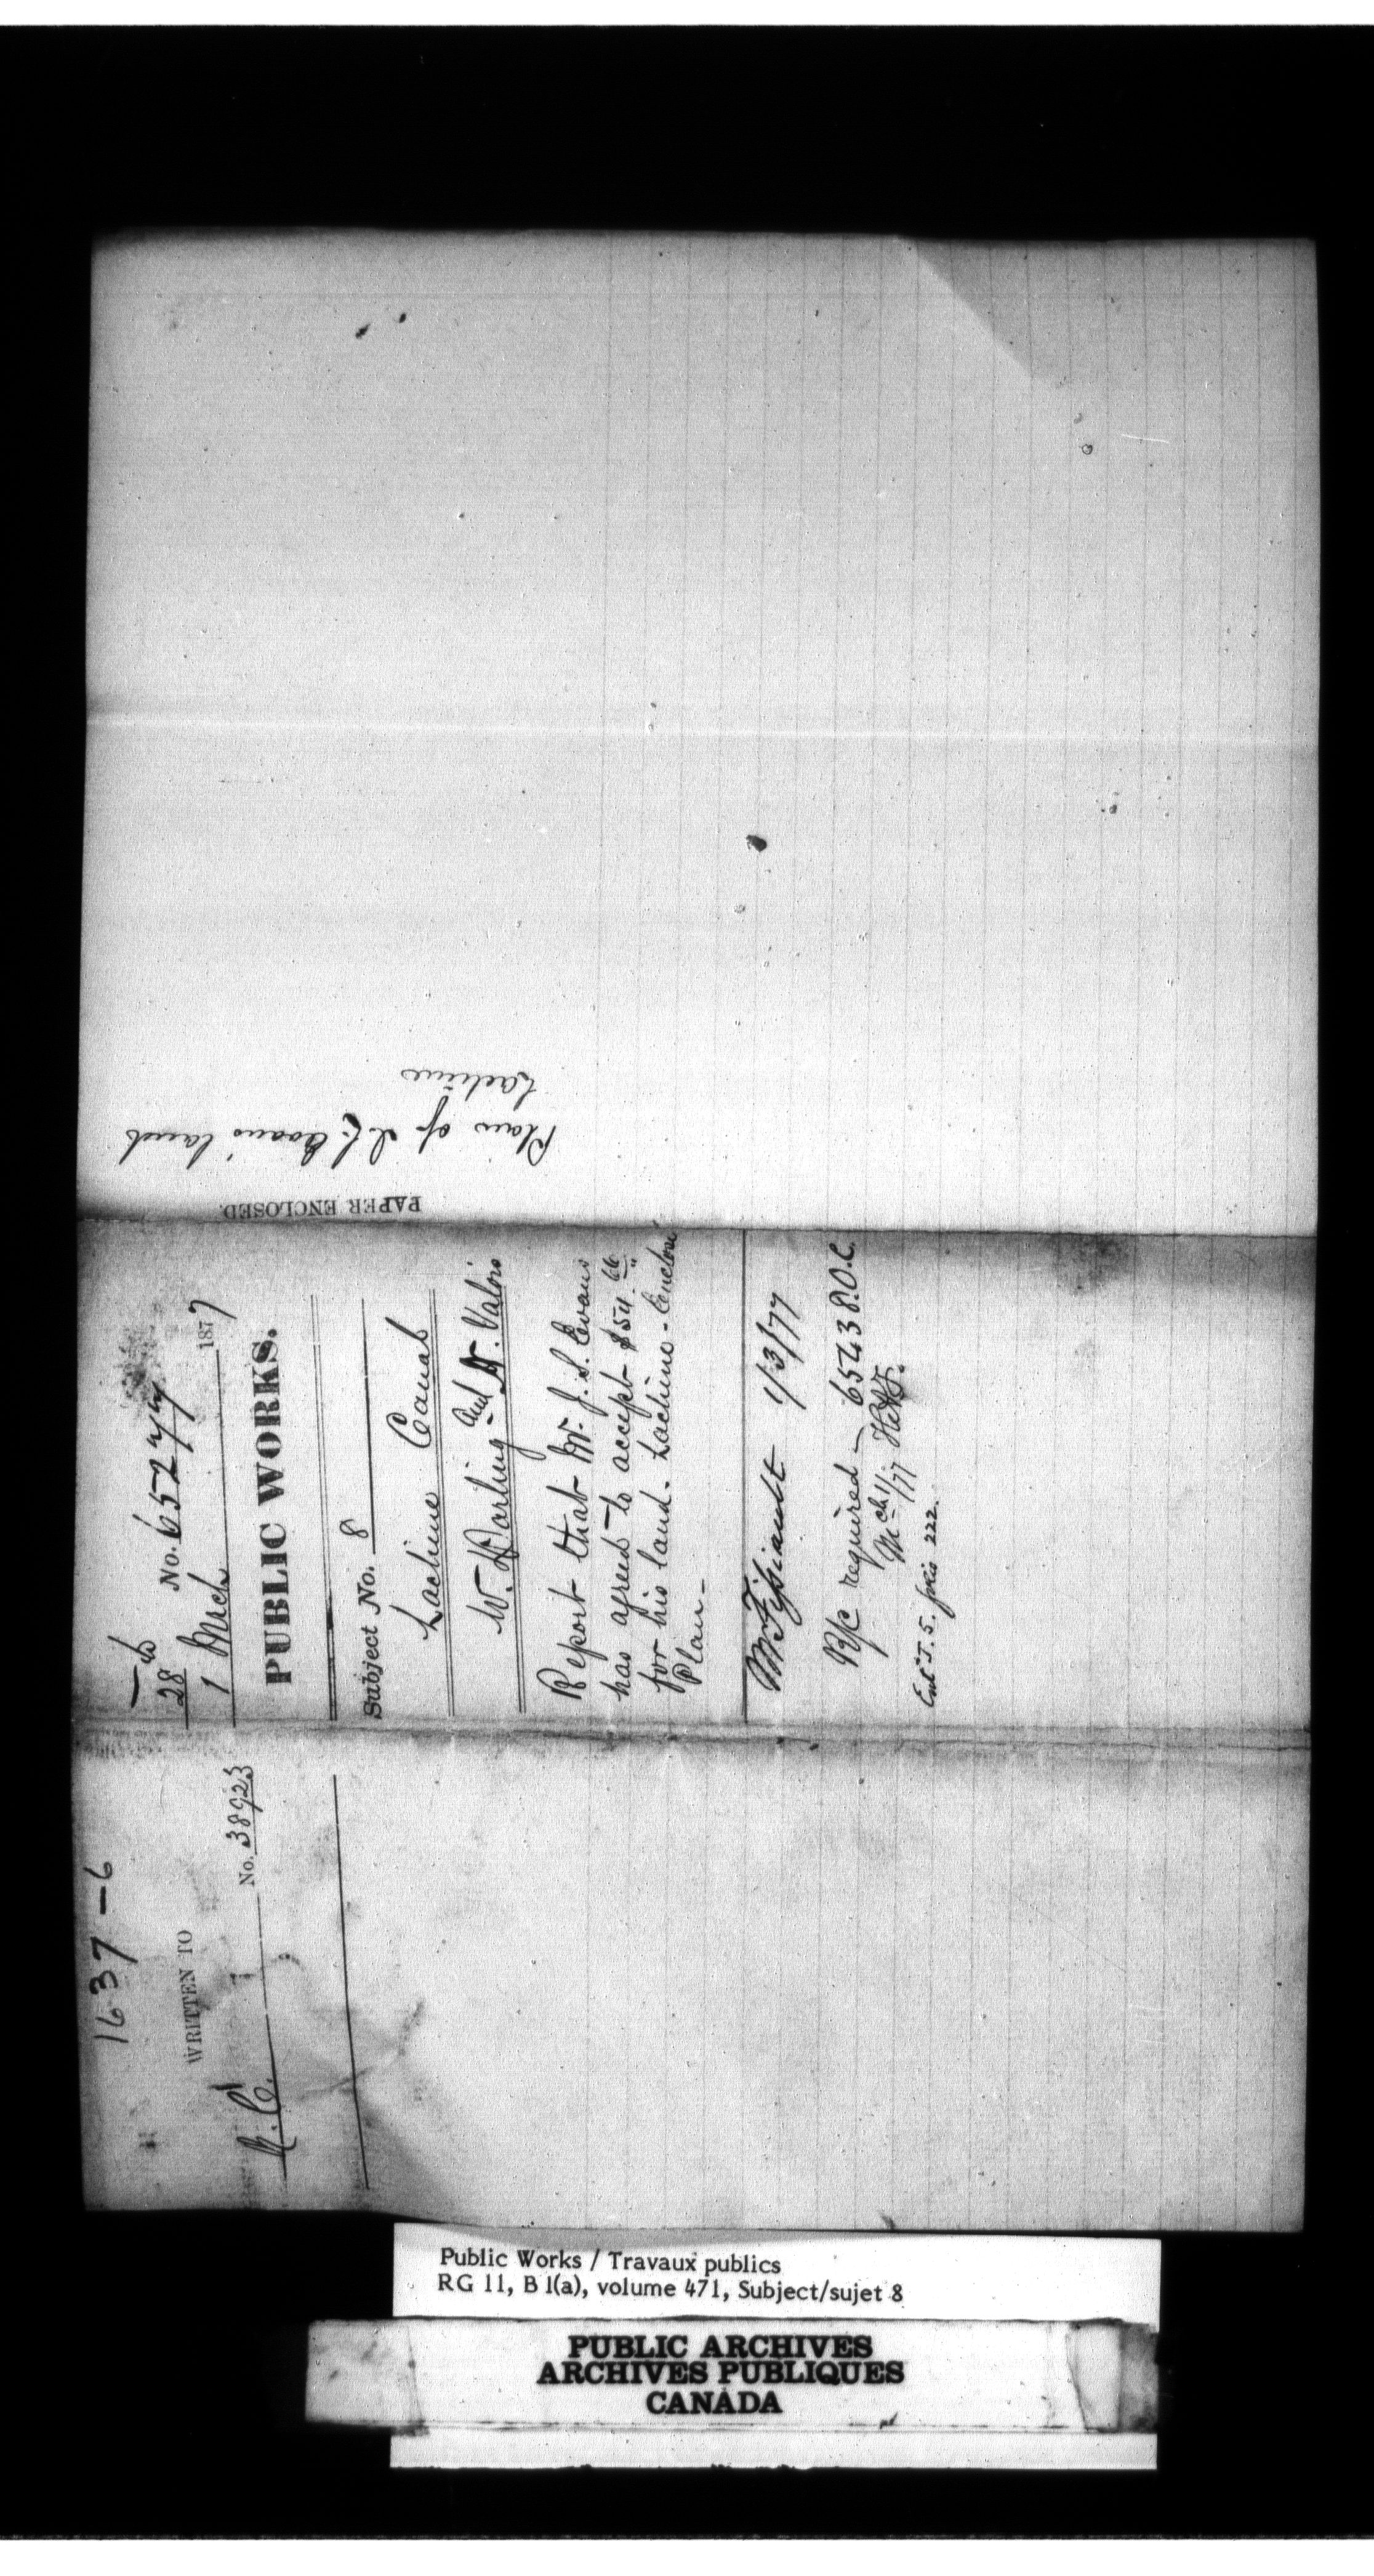 1637-6
WRITTEN TO
No. 38923
28
No. 65277
1 Mrch 1877
PUBLIC WORKS.
Subject No. 8
Lachine Canal
W. Darling and Valois
Report that Mr. J. S. Evans
has agreed to accept
for his land. Lachine - Enclose
Plan -
1/3/77
R/c required - 65438.O.C.
Mch 11/77
222.
PAPER ENCLOSED.
Plan of J. S. Evans' land
Lachine
Public Works / Travaux publics
RG 11, B 1(a), volume 471, Subject/sujet 8
PUBLIC ARCHIVES
ARCHIVES PUBLIQUES
CANADA